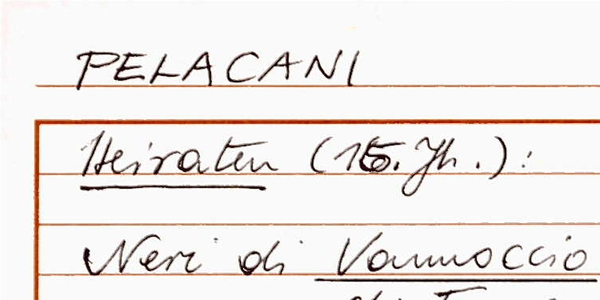 PELACANI
Heiraten (15. Jh.):
Neri di Vannoccio